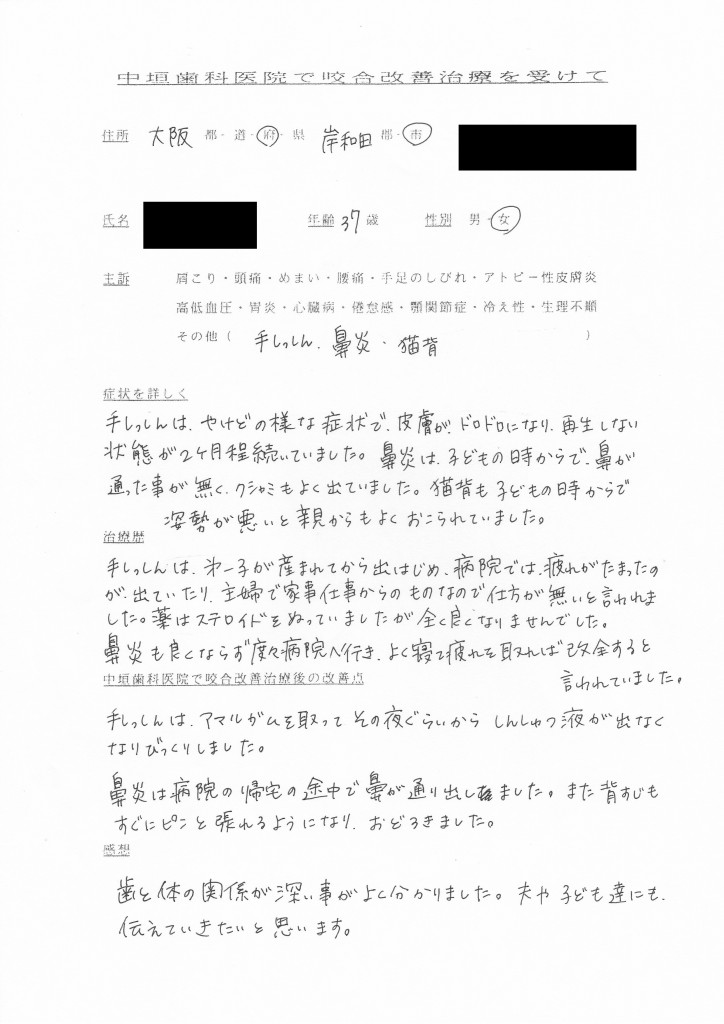 中垣歯科医院で咬合改善治療を受けて
住所 大阪 都・道・府・県 岸和田 郡・市
氏名 年齢 37 歳 性別 男・女
主訴 肩こり・頭痛・めまい・腰痛・手足のしびれ・アトピー性皮膚炎
高低血圧・胃炎・心臓病・倦怠感・顎関節症・冷え性・生理不順
その他( 手しっしん、鼻炎・猫背 )
症状を詳しく
手しっしんは、やけどの様な症状で、皮膚が、ドロドロになり、再生しない
状態が2ヶ月程続いていました。鼻炎は、子どもの時からで、鼻が
通った事が無く、クシャミもよく出ていました。猫背も子どもの時からで
姿勢が悪いと親からもよくおこられていました。
治療歴
手しっしんは、第一子が産まれてから出はじめ、病院では、疲れがたまったの
が、出ていたり、主婦で家事仕事からのものなので仕方が無いと言われま
した。薬はステロイドをぬっていましたが全く良くなりませんでした。
鼻炎も良くならず度々病院へ行き、よく寝て疲れを取れば改全すると
言われていました。
中垣歯科医院で咬合改善治療後の改善点
手しっしんは、アマルガムを取ってその夜ぐらいから しんしゅつ液が出なく
なりびっくりしました。
鼻炎は病院の帰宅の途中で鼻が通り出しました。また背すじも
すぐにピンと張れるようになり、おどろきました。
感想
歯と体の関係が深い事がよく分かりました。夫や子ども達にも、
伝えていきたいと思います。